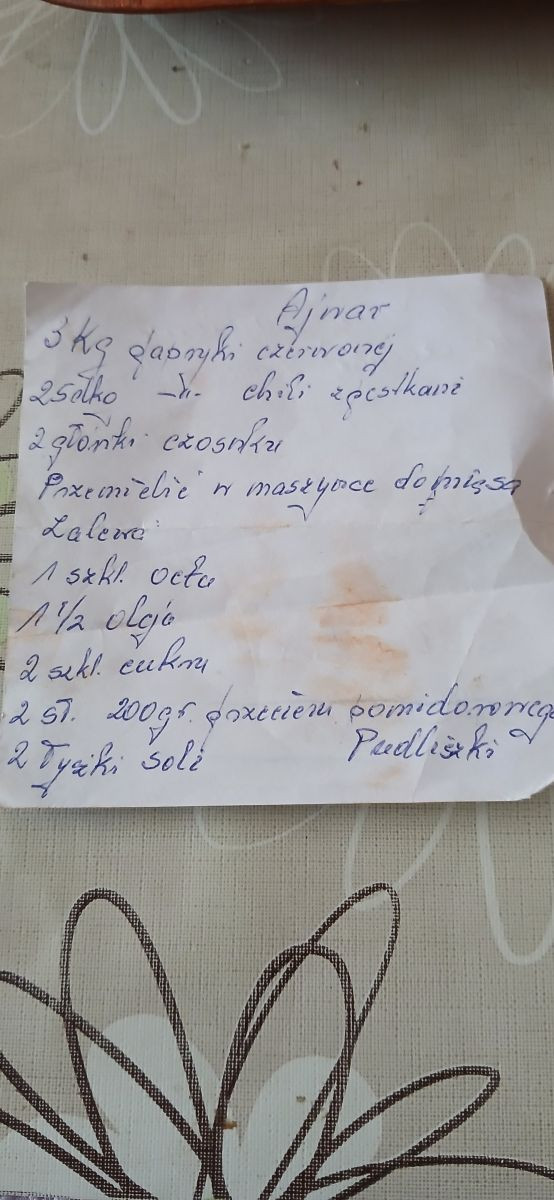 Ajwar
3 Kg papryki czerwonej
25dko -"- chili z pestkami
2 głowki czosnku
Przemielić w maszynce do mięsa
Zalewa
1 szkl. octu
1 1/2 oleju
2 szkl. cukru
2 sł. 200 gr. przecieru pomidorowego
2 łyżki soli Pudliszki